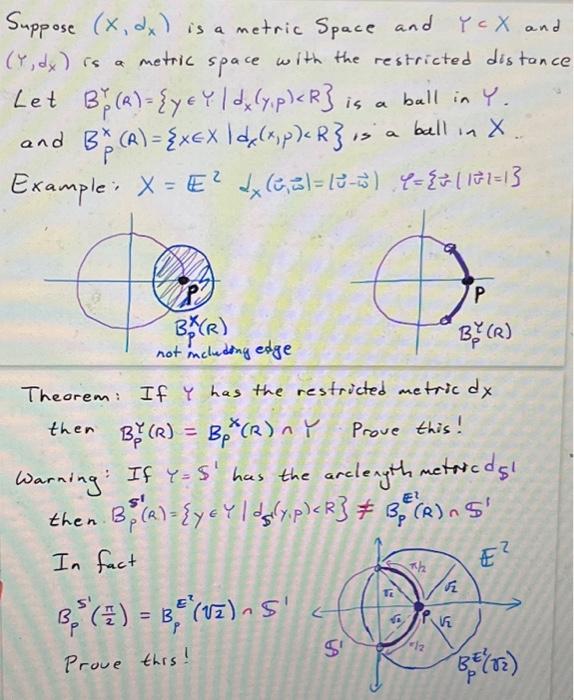 Suppose (X, dₓ) is a metric Space and Y ⊂ X and
(Y, dₓ) is a metric space with the restricted distance
Let B_p^Y(R) = {y ∈ Y | dₓ(y,p) < R} is a ball in Y.
and B_p^X(R) = {x ∈ X | dₓ(x,p) < R} is a ball in X.
Example: X = 𝔼² dₓ(v⃗,w⃗) = |v⃗-w⃗| Y = {v⃗ | |v⃗| = 1}
P
P
B_p^X(R)
not including edge
B_p^Y(R)
Theorem: If Y has the restricted metric dx
then B_p^Y(R) = B_p^X(R) ∩ Y Prove this!
Warning: If Y = 𝕊¹ has the arclength metric d_𝕊¹
then B_p^𝕊¹(R) = {y ∈ Y | d_𝕊¹(y,p) < R} ≠ B_p^𝔼²(R) ∩ 𝕊¹
In fact
𝔼²
π/2
√2
√2
B_p^𝕊¹(π/2) = B_p^𝔼²(√2) ∩ 𝕊¹
P
√2
√2
𝕊¹
π/2
B_p^𝔼²(√2)
Prove this!